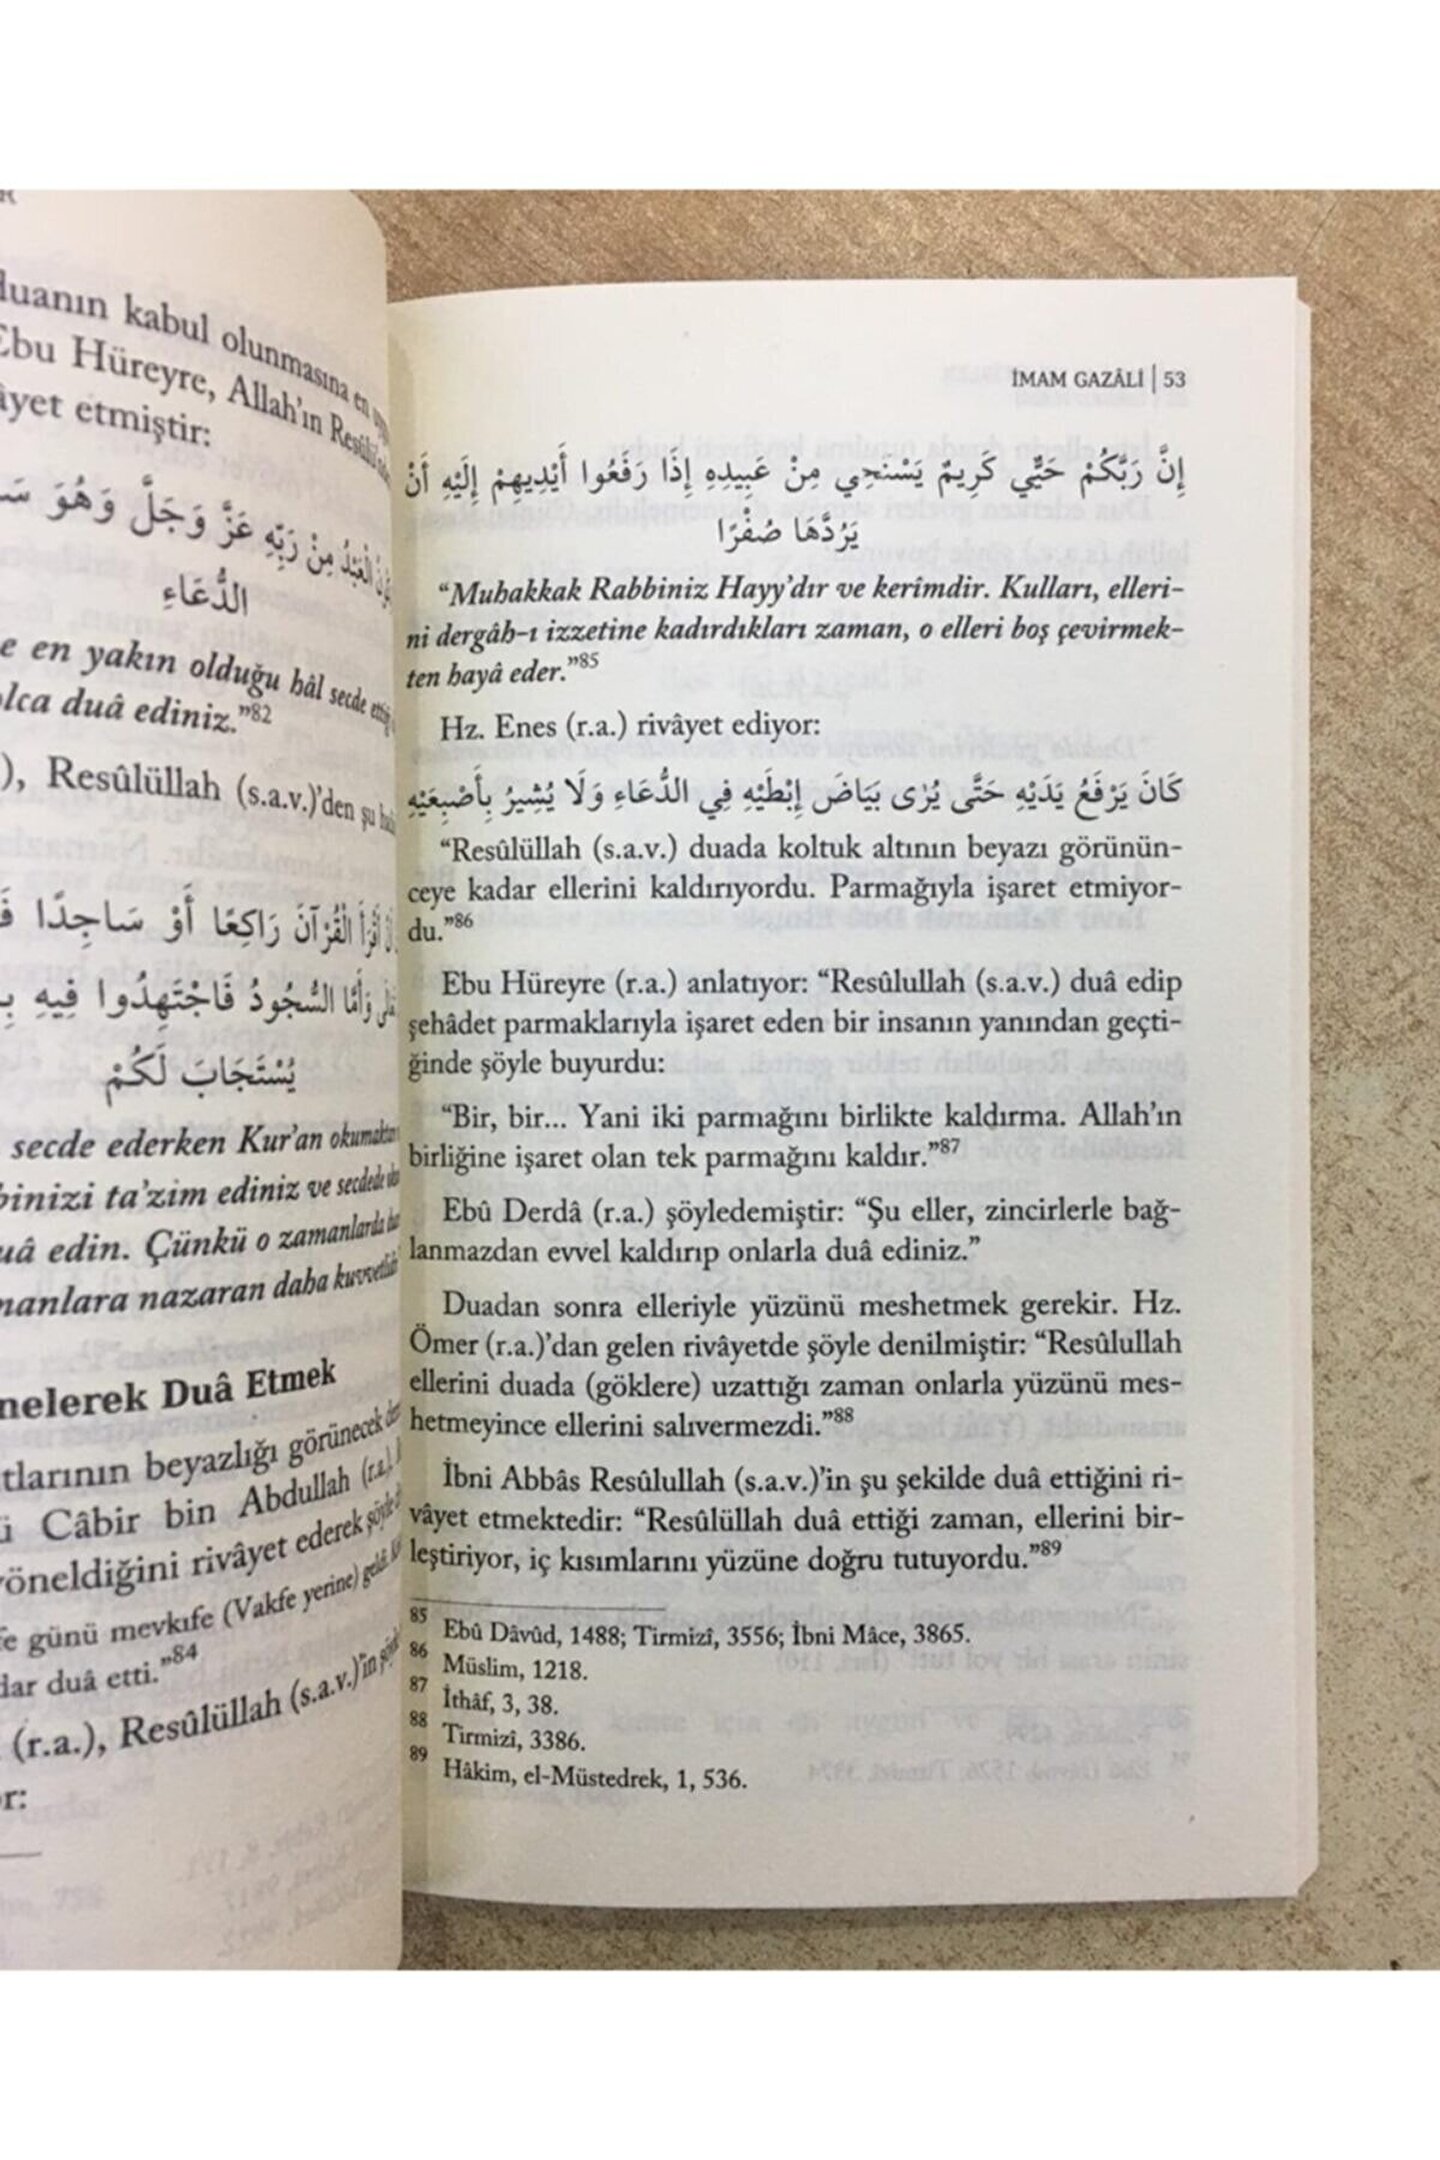 duanın kabul olunmasına en
Ebu Hüreyre, Allah'ın Resûlü
âyet etmiştir:
الْعَبْدُ مِنْ رَبِّهِ عَزَّ وَجَلَّ وَهُوَ
الدُّعَاءِ
e en yakın olduğu hâl secde ettiği
olca duâ ediniz."82
), Resûlüllah (s.a.v.)'den şu
أَقْرَأَ الْقُرْآنَ رَاكِعًا أَوْ سَاجِدًا
وَأَمَّا السُّجُودُ فَاجْتَهِدُوا فِيهِ
يُسْتَجَابَ لَكُمْ
secde ederken Kur'an okumaktan
binizi ta'zim ediniz ve secdede
uâ edin. Çünkü o zamanlarda
manlara nazaran daha kuvvetlidir
nelerek Duâ Etmek
tlarının beyazlığı görünecek
ü Câbir bin Abdullah (r.a.),
yöneldiğini rivâyet ederek şöyle
fe günü mevkıfe (Vakfe yerine) geldi.
dar duâ etti."84
(r.a.), Resûlüllah (s.a.v.)'in
or:
İMAM GAZÂLİ | 53
إِنَّ رَبَّكُمْ حَيٌّي كَرِيمٌ يَسْتَحِي مِنْ عَبِيدِهِ إِذَا رَفَعُوا أَيْدِيهِمْ إِلَيْهِ أَنْ
يَرُدَّهَا صُفْرًا
"Muhakkak Rabbiniz Hayy'dır ve kerîmdir. Kulları, elleri-
ni dergâh-ı izzetine kadırdıkları zaman, o elleri boş çevirmek-
ten hayâ eder."85
Hz. Enes (r.a.) rivâyet ediyor:
كَانَ يَرْفَعُ يَدَيْهِ حَتَّى يُرَى بَيَاضَ إِبْطَيْهِ فِي الدُّعَاءِ وَلَا يُشِيرُ بِأَصْبِعَيْهِ
"Resûlüllah (s.a.v.) duada koltuk altının beyazı görünün-
ceye kadar ellerini kaldırıyordu. Parmağıyla işaret etmiyor-
du."86
Ebu Hüreyre (r.a.) anlatıyor: "Resûlullah (s.a.v.) duâ edip
şehâdet parmaklarıyla işaret eden bir insanın yanından geçti-
ğinde şöyle buyurdu:
"Bir, bir... Yani iki parmağını birlikte kaldırma. Allah'ın
birliğine işaret olan tek parmağını kaldır."87
Ebû Derdâ (r.a.) şöyledemiştir: "Şu eller, zincirlerle bağ-
lanmazdan evvel kaldırıp onlarla duâ ediniz."
Duadan sonra elleriyle yüzünü meshetmek gerekir. Hz.
Ömer (r.a.)'dan gelen rivâyetde şöyle denilmiştir: "Resûlullah
ellerini duada (göklere) uzattığı zaman onlarla yüzünü mes-
hetmeyince ellerini salıvermezdi."88
İbni Abbâs Resûlullah (s.a.v.)'in şu şekilde duâ ettiğini ri-
vâyet etmektedir: "Resûlüllah duâ ettiği zaman, ellerini bir-
leştiriyor, iç kısımlarını yüzüne doğru tutuyordu."89
85 Ebû Dâvûd, 1488; Tirmizî, 3556; İbni Mâce, 3865.
86 Müslim, 1218.
87 İthâf, 3, 38.
88 Tirmizî, 3386.
89 Hâkim, el-Müstedrek, 1, 536.